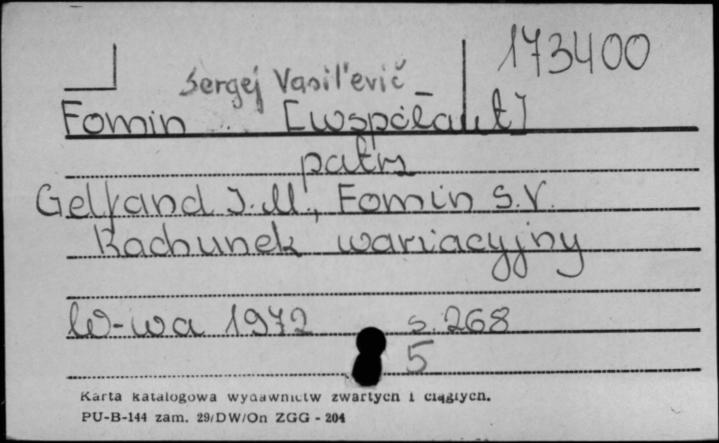 173400
Sergej Vasil'evič
Fomin [współaut]
patrz
Gelfand I.M., Fomin S.V.
Rachunek wariacyjny
W-wa 1972 s. 268
5
Karta katalogowa wydawnictw zwartych i ciągłych.
PU-B-144 zam. 29/DW/On ZGG - 204